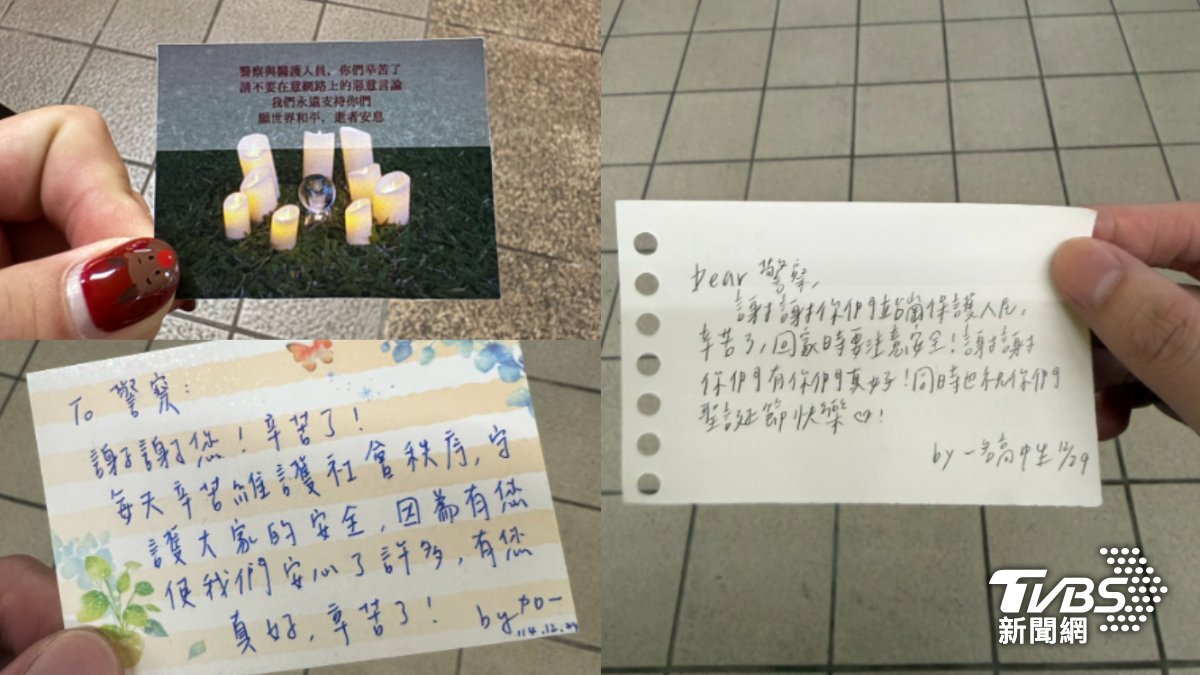 警察與醫護人員，你們辛苦了
請不要在意網路上的惡意言論
我們永遠支持你們
願世界和平，逝者安息
To 警察：
謝謝您！辛苦了！
每天辛苦維護社會秩序，守
護大家的安全，因為有您
使我們安心了許多，有您
真好，辛苦了！
by 加一
114.12.29
Dear 警察，
謝謝你們站崗保護人民，
辛苦了，回家時要注意安全！謝謝
你們有你們真好！同時也祝你們
聖誕節快樂♡！
by 一名高中生 12/29
TVBS
新聞網